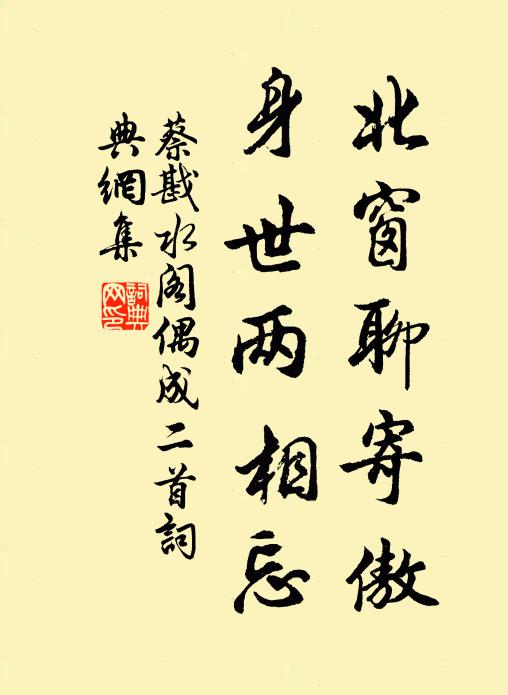 北窗聊寄傲
身世两相忘
蔡戡水阁偶成二首詞
典網集
詞典
网印